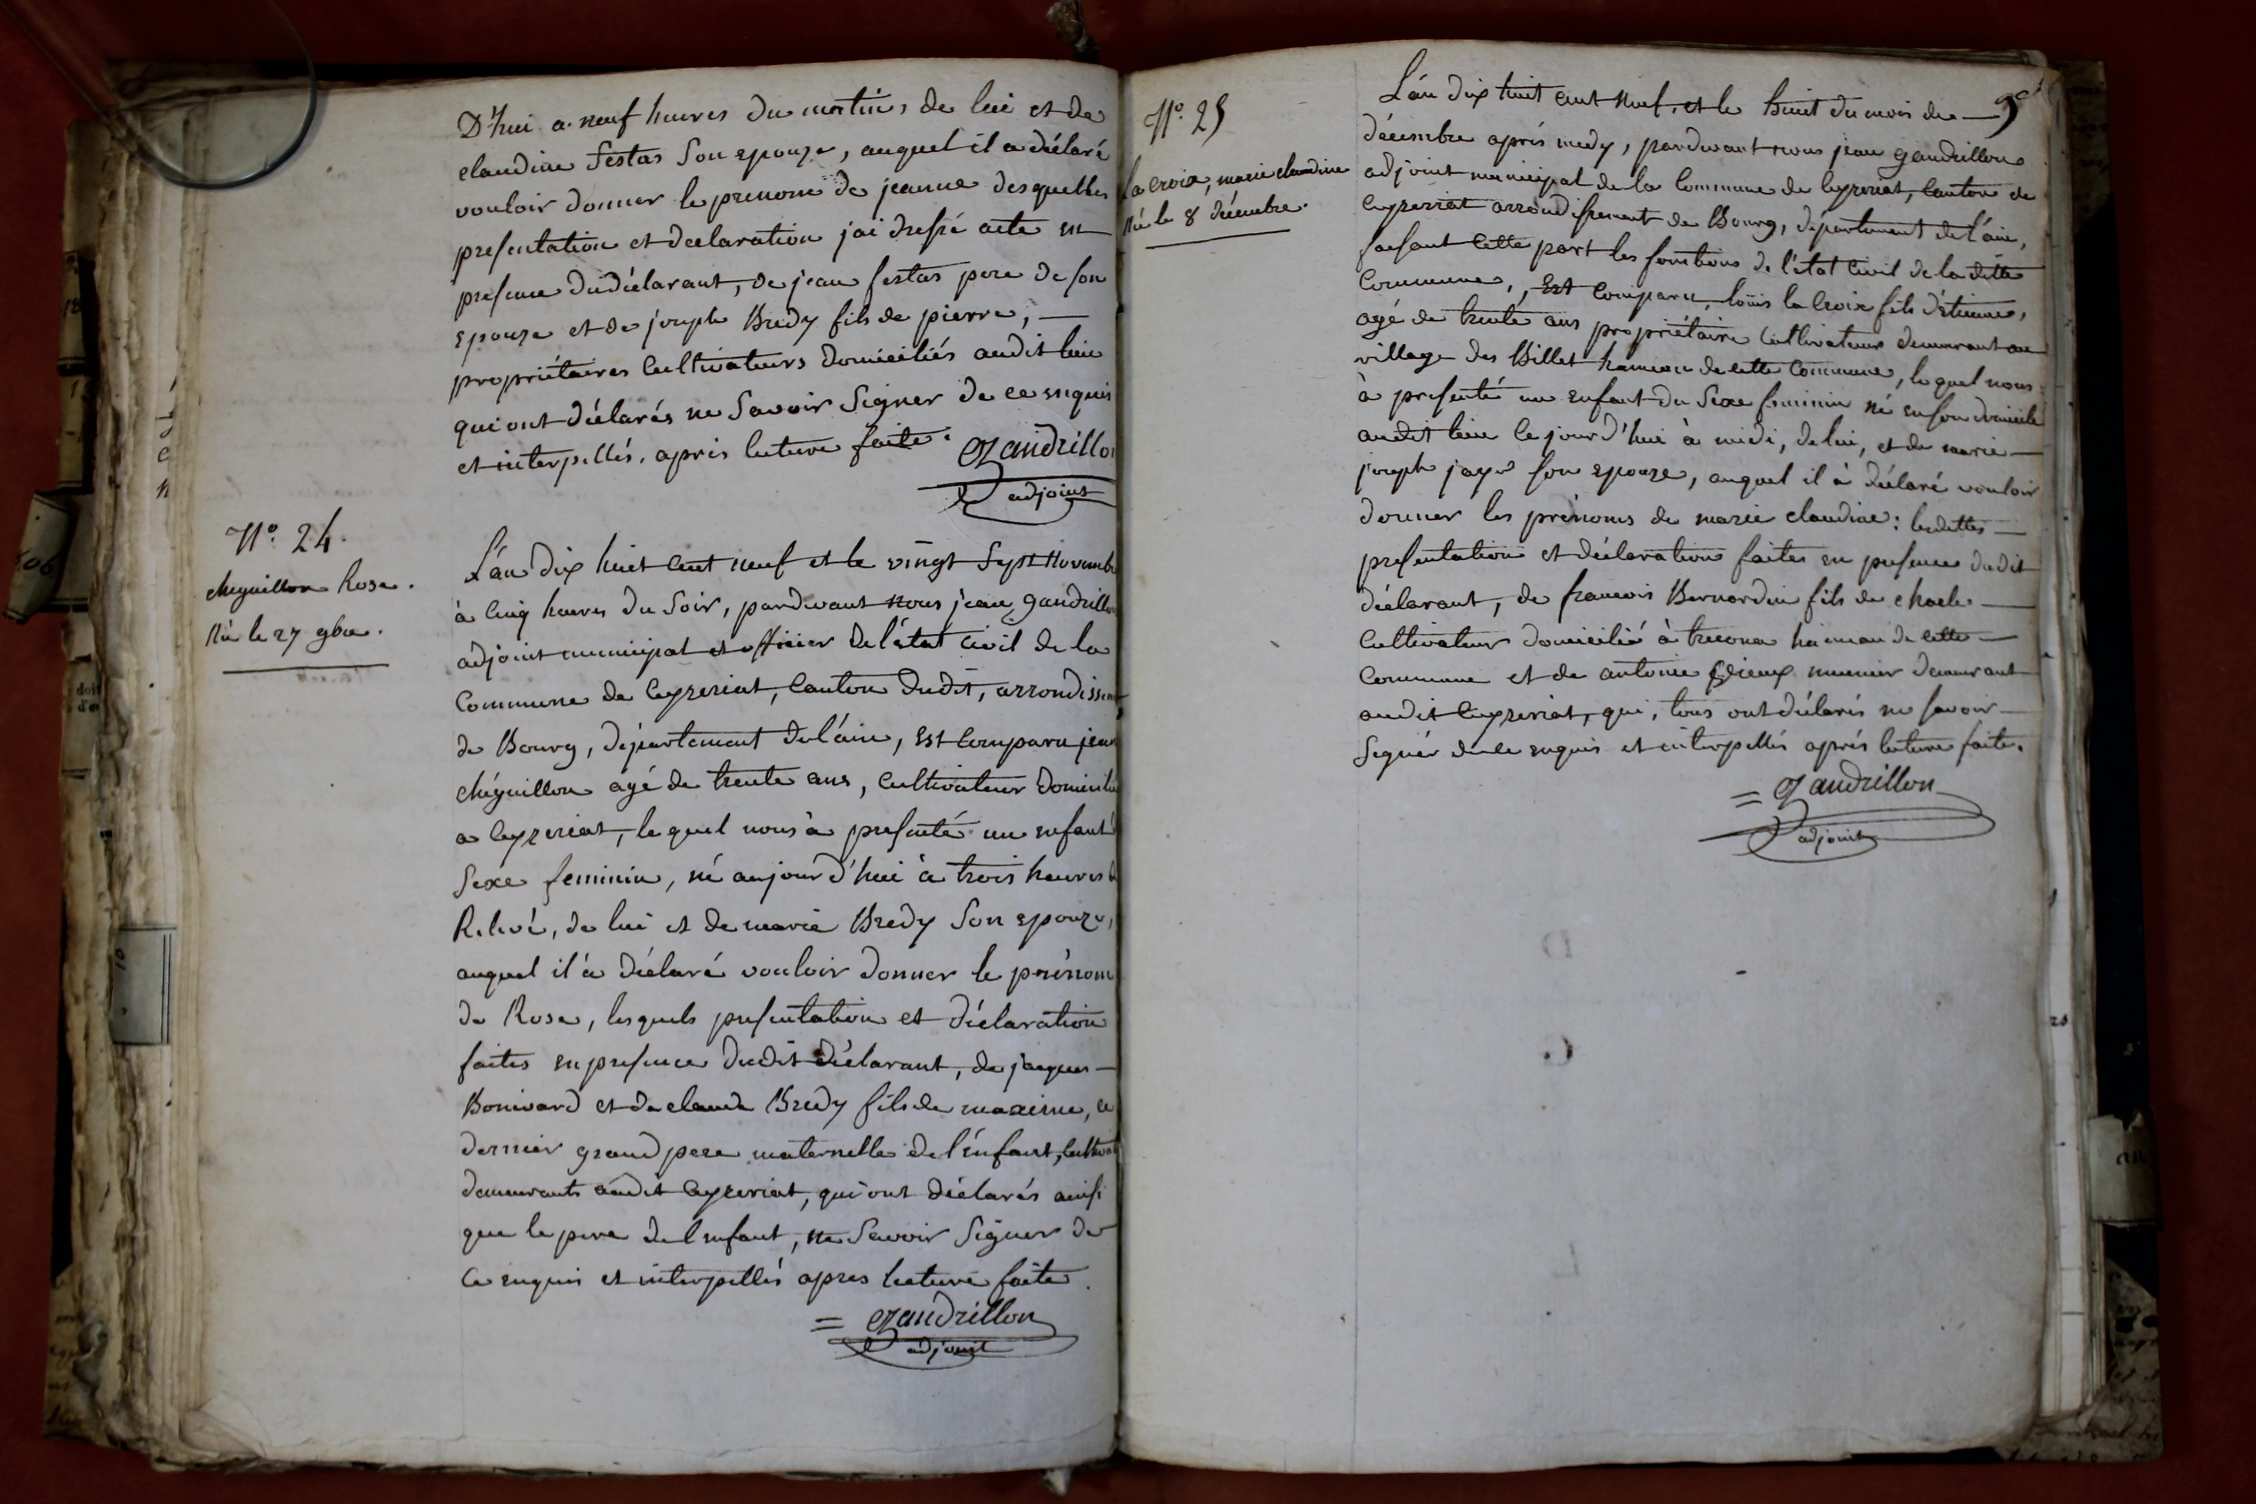 D'hui a neuf heures du matin, de lui et de
claudine festas son epouze, auquel il a déclaré
vouloir donner le prenom de jeanne desquelles
presentation et declaration jai dressé acte en
presence dudéclarant, de jean festas pere de son
epouze et de joseph Bredy fils de pierre,
propriétaires Cultivateurs domiciliés audit lieu
qui ont déclarés ne Savoir Signer de ce enquis
et interpellés, après lecture faite.
Gandrillon
adjoint
N.º 24.
cheguillon Rose.
Né le 27 9bre.
L'an dix huit cent neuf et le vingt Sept Novembre
à Cinq heures du Soir, pardevant Nous jean gandrillon
adjoint municipal et officier de l'état Civil de la
Commune de Ceyzeriat, Canton dudit, arrondissement
de Bourg, département de l'ain, Est Comparu jean
chéguillon agé de trente ans, Cultivateur domicilié
a Ceyzeriat, lequel nous à presenté un enfant
Sexe feminin, né aujourd'hui à trois heures
Relevé, de lui et de marie Bredy Son epouze,
auquel il à déclaré vouloir donner le prénom
de Rose, lesquels presentation et déclaration
faites en presence dudit déclarant, de jacques
Bonivard et de claude Bredy fils de maxime, ce
dernier grand pere maternelle de l'énfant,
demeurants audit Ceyzeriat, qui ont déclarés ainsi
que le pere de lenfant, ne Savoir Signer de
Ce enquis et interpellés apres lecture faite.
= Gandrillon
adjoint
N.º 25
la Croix, marie claudine
Né le 8 décembre.
L'an dix huit cent neuf, et le huit du mois de
décembre aprés midy, pardevant nous jean gandrillon
adjoint municipal de la Commune de Ceyzeriat, Canton de
Ceyzeriat arrondissement de Bourg, département de l'ain,
faisant cette part les fonctions de l'état Civil de la ditte
Commune, Est Comparu, loüis la Croix fils d'étienne,
agé de trente ans propriétaire Cultivateur demeurant au
village des Billet hameau de cette Commune, lequel nous
à presenté un enfant du Sexe feminin né en son domicile
audit lieu le jour d'hui à midi, de lui, et de marie
joseph jayr son epouze, auquel il à déclaré vouloir
donner les prénoms de marie claudine: lesdittes
presentation et déclaration faites en presence dudit
déclarant, de francois Bernardin fils de charle
Cultivateur domicilié à treconna hameau de cette
Commune et de antoine meunier demeurant
audit Ceyzeriat, qui, tous ont déclarés ne savoir
Signér de ce enquis et interpellés aprés lecture faite.
= Gandrillon
adjoint